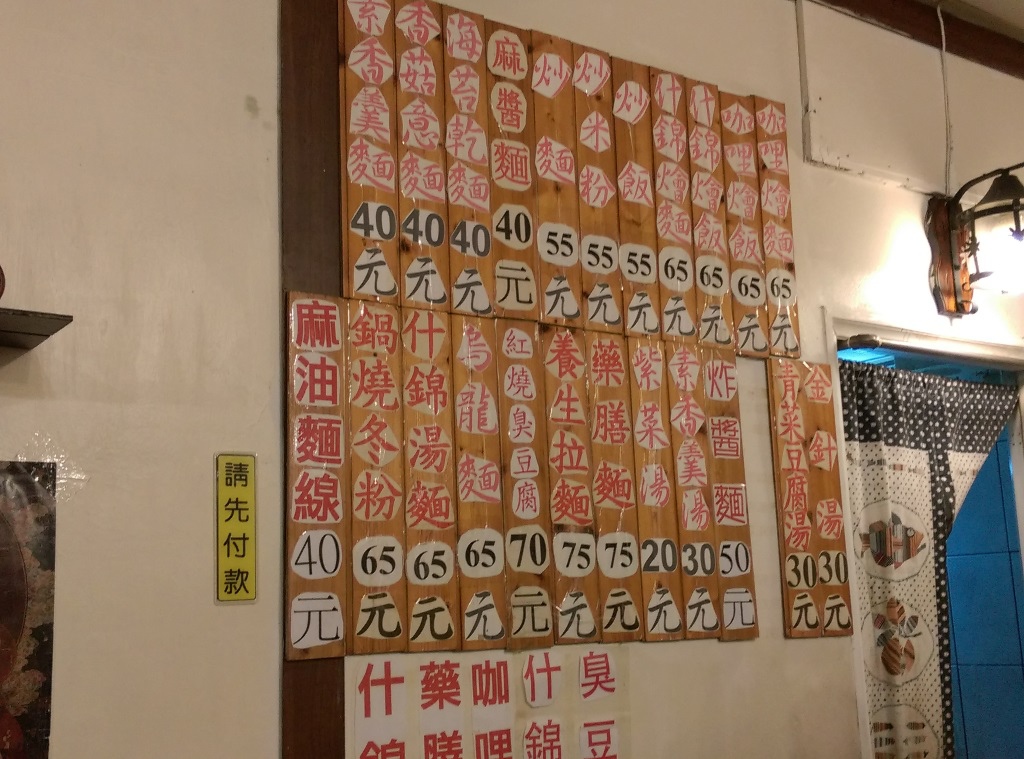 素香羹麵40元
香菇意麵40元
海苔乾麵40元
麻醬麵40元
炒麵55元
炒米粉55元
炒飯55元
什錦燴麵65元
什錦燴飯65元
咖哩燴飯65元
咖哩燴麵65元
麻油麵線40元
鍋燒冬粉65元
什錦湯麵65元
烏龍麵65元
紅燒臭豆腐70元
養生拉麵75元
藥膳麵75元
紫菜湯20元
素香羹湯30元
炸醬麵50元
青菜豆腐湯30元
金針湯30元
請先付款
什錦
藥膳
咖哩
什錦
臭豆